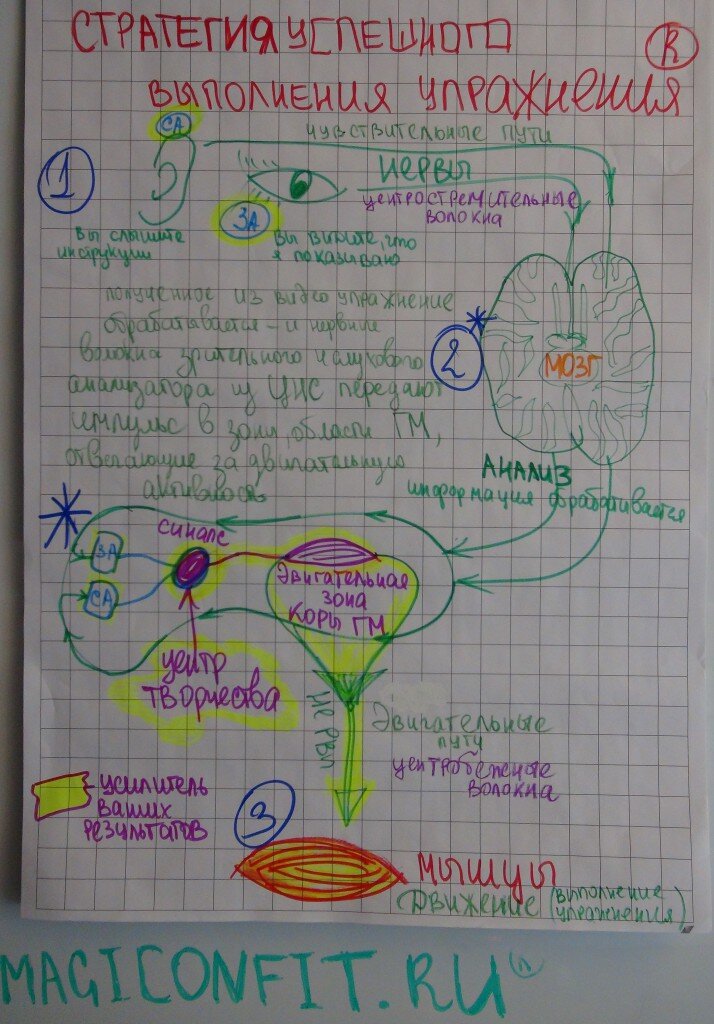 СТРАТЕГИЯ УСПЕШНОГО
ВЫПОЛНЕНИЯ УПРАЖНЕНИЯ
R
СА
чувствительные пути
1
НЕРВЫ
центростремительные
волокна
ЗА
Вы слышите
инструкции
Вы видите, что
я показываю
полученное из видео упражнение
обрабатывается – и нервные
волокна зрительного и слухового
анализатора из ЦНС передают
импульс в зоны, области ГМ,
отвечающие за двигательную
2
МОЗГ
АНАЛИЗ
информация обрабатывается
синапс
ЗА
СА
Двигательная
зона
коры ГМ
центр
творчества
нервы
Двигательные
пути
центробежные
волокна
- усилитель
ваших
результатов
3
МЫШЦЫ
Движение (выполнение
упражнения)
MAGICONFIT.RU